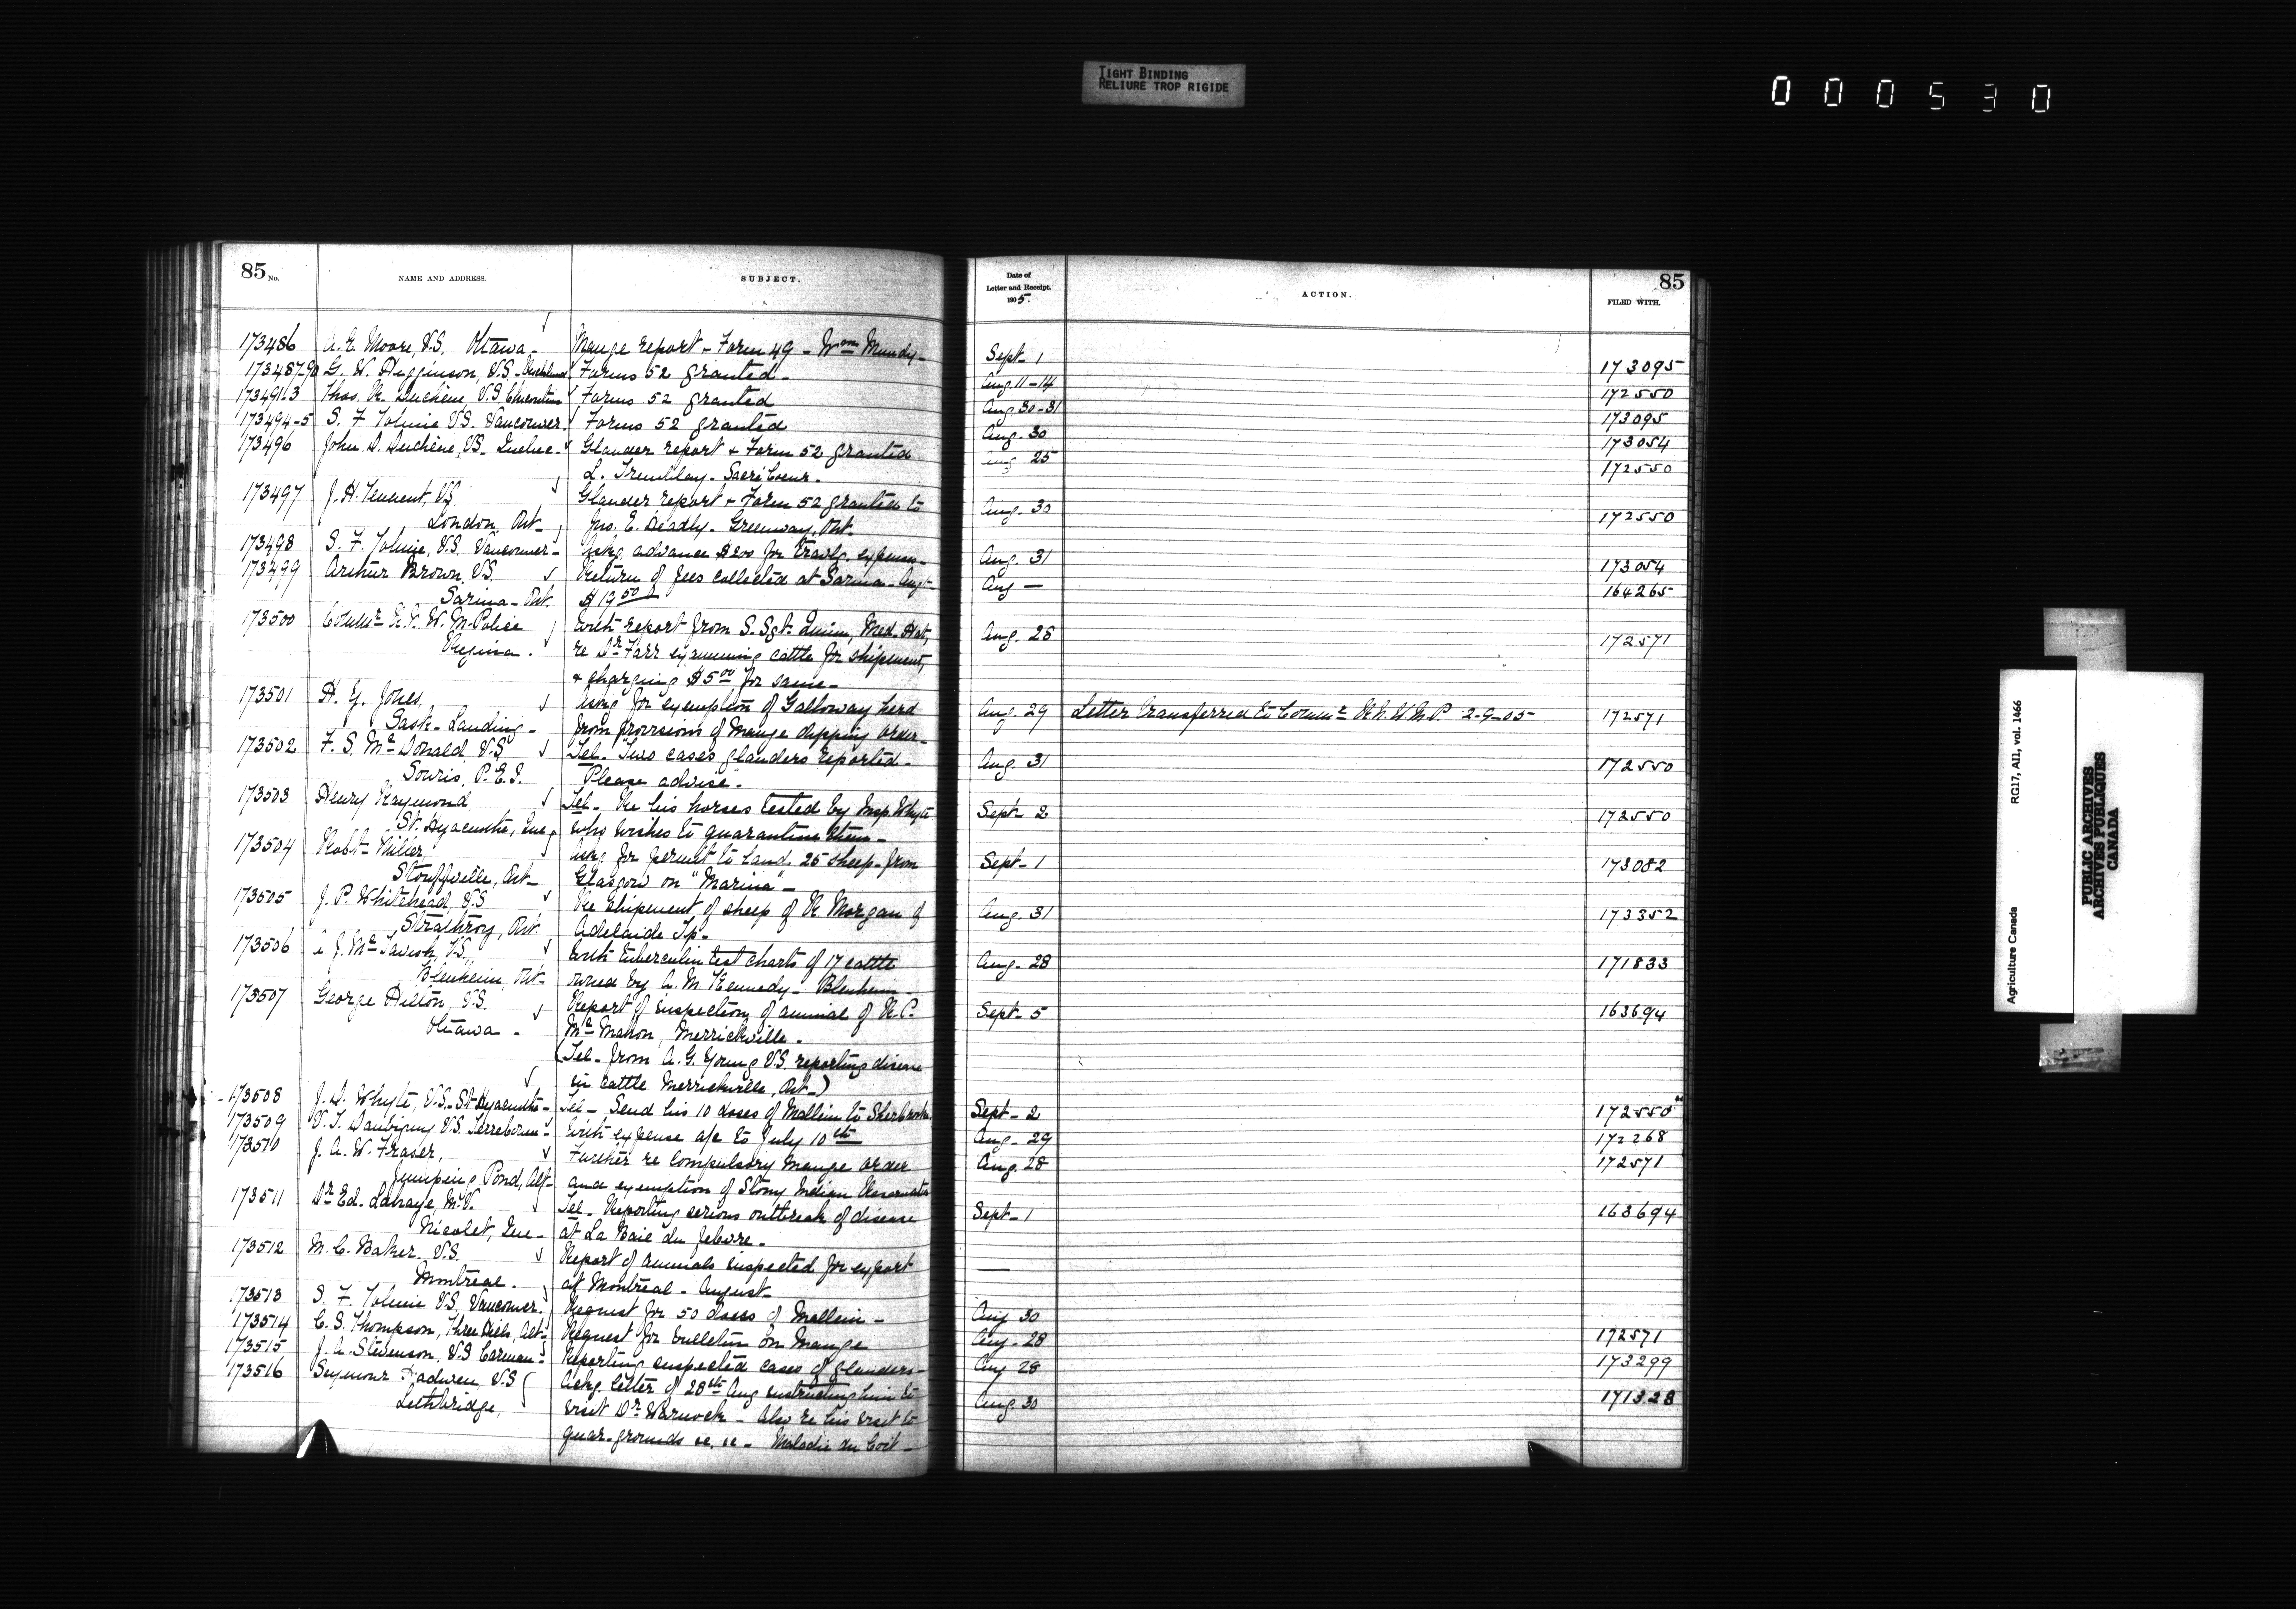 TIGHT BINDING
RELIURE TROP RIGIDE
000530
85 No. NAME AND ADDRESS. SUBJECT.
173486 A. E. Moore, V.S. Ottawa - Mange report - Form 49 - Wm Mundy -
173487-90 G. W. Higginson, V.S. - Forms 52 granted -
173491-3 Thos. A. Duchene, V.S. Chicoutimi Forms 52 granted
173494-5 S. F. Tolmie V.S. Vancouver. Forms 52 granted
173496 John D. Duchene, V.S. Quebec - Glander report + Form 52 granted
L. Tremblay - Sacré Coeur -
173497 J. H. Tennent, V.S. Glander report + Form 52 granted to
London, Ont - Jno. E. Deadly - Greenway, Ont.
173498 S. F. Tolmie, V.S. Vancouver - Askg advance $200 for travlg. expenses -
173499 Arthur Brown, V.S. Return of fees collected at Sarnia - Augt -
Sarnia - Ont. $19 50
173500 Commr R. N. W. M. Police With report from S. Sgt. Quinn, Med. Hat,
Regina. re Dr Farr examining cattle for shipment,
+ charging $5 00 for same -
173501 H. G. Jones, Askg for exemption of Galloway herd
Sask - Landing - from provisions of Mange dipping order -
173502 F. S. McDonald, V.S. Tel - Two cases glanders reported -
Souris, P.E.I. Please advise -
173503 Henry Raymond Tel - Re his horses tested by Insp. Whyte
St. Hyacinthe, Que who wishes to quarantine them -
173504 Robt - Miller Askg for permit to land 25 sheep from
Stouffville, Ont - Glasgow on "Marina" -
173505 J. P. Whitehead, V.S. Re shipment of sheep of R Morgan of
Strathroy, Ont. Adelaide Tp -
173506 J. McTavish, V.S. With tuberculin test charts of 17 cattle
Blenheim, Ont - owned by A. M. Kennedy - Blenheim -
173507 George Hilton, V.S. Report of inspection of animal of R. C.
Ottawa - McMahon, Merrickville -
(Tel - from A. G. Young V.S. reporting disease
in cattle Merrickville, Ont -)
173508 J. D. Whyte, V.S. - St Hyacinthe - Tel - Send his 10 doses of Mallein to Sherbrooke.
173509 V. T. Daubigny V.S. Terrebonne - With expense a/c to July 10th
173510 J. A. W. Fraser, Further re Compulsory Mange order
Jumping Pond, Alt - and exemption of Stony Indian Reservation
173511 Dr Ed. Lahaye, M.V. Tel - Reporting serious outbreak of disease
Nicolet, Que - at La Baie du Febvre -
173512 M. C. Baker, V.S. Report of animals inspected for export
Montreal. at Montreal - August -
173513 S. F. Tolmie V.S. Vancouver. Request for 50 doses of Mallein -
173514 C. S. Thompson, Three Hills, Alt - Request for bulletin on Mange
173515 J. A. Stevenson, V.S Carman - Reporting suspected cases of glanders -
173516 Seymour Hadwen, V.S Ackg. letter of 28th Aug instructing him to
Lethbridge. visit Dr Warnock - Also re his visit to
quar. grounds &c. &c - Maladie du Coit -
Date of Letter and Receipt. 1905. ACTION. 85 FILED WITH.
Sept - 1 173095
Aug. 11 - 14 172550
Aug. 30 - 31 173095
Aug. 30 173054
Aug 25 172550
Aug. 30 172550
Aug. 31 173054
Aug — 164265
Aug. 28 172571
Aug. 29 Letter transferred to Commr R.N.W.M.P 2-9-05 172571
Aug. 31 172550
Sept - 2 172550
Sept - 1 173082
Aug. 31 173352
Aug. 28 171833
Sept - 5 163694
Sept - 2 172550
Aug - 29 172268
Aug. 28 172571
Sept - 1 163694
—
Aug 30
Aug - 28 172571
Aug 28 173299
Aug. 30 171328
Agriculture Canada RG17, AI1, vol. 1466
PUBLIC ARCHIVES
ARCHIVES PUBLIQUES
CANADA